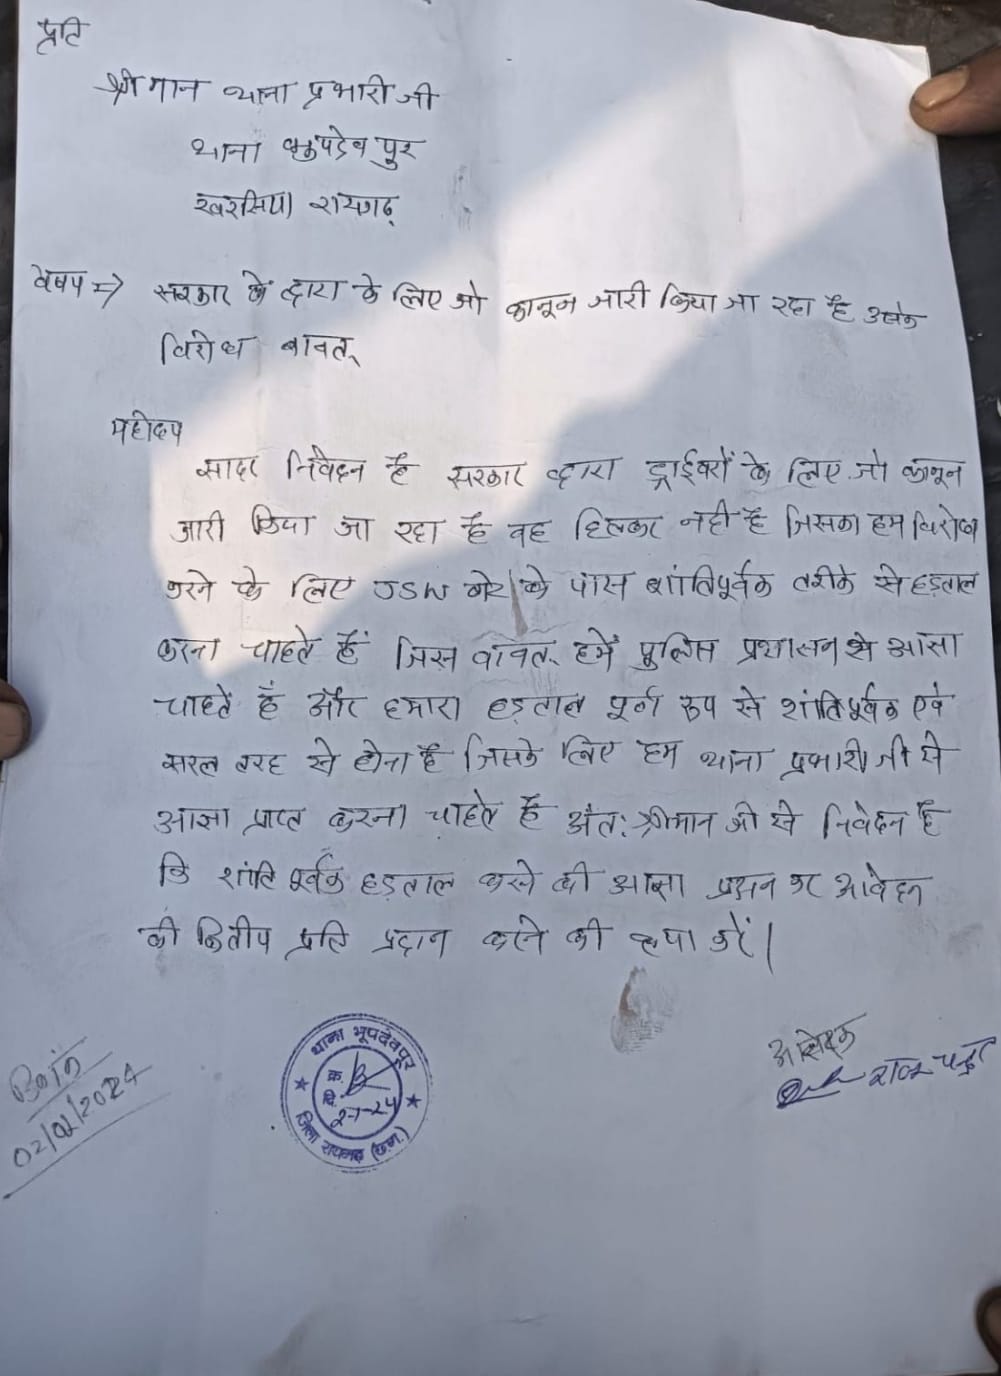 प्रति
श्रीमान थाना प्रभारी जी
थाना भुपदेवपुर
खरसिया रायगढ़
विषय => सरकार के द्वारा के लिए जो कानून जारी किया जा रहा है उसके
विरोध बावत्
महोदय
सादर निवेदन है सरकार द्वारा ड्राईवरों के लिए जो कानून
जारी किया जा रहा है वह हितकर नही है जिसका हम विरोध
करने के लिए JSW गेट के पास शांतिपूर्वक तरीके से हड़ताल
करना चाहते हैं जिस बावत् हमें पुलिस प्रशासन से आज्ञा
चाहते हैं और हमारा हड़ताल पूर्ण रूप से शांतिपूर्वक एवं
सरल तरह से होना है जिसके लिए हम थाना प्रभारी जी से
आज्ञा प्राप्त करना चाहते हैं अंत: श्रीमान जी से निवेदन है
कि शांति पूर्वक हड़ताल करने की आज्ञा कर आवेदन
की द्वितीय प्रति प्रदान करने की कृपा करें।
थाना भूपदेवपुर
क्र.
दि. 2-1-24
जिला रायगढ़ (छ.ग.)
आवेदक
02/01/2024